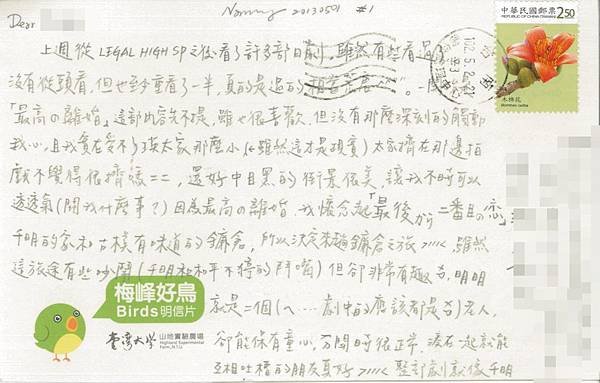 Nanny 20130501 #1
Dear
中華民國郵票
REPUBLIC OF CHINA (TAIWAN)
2.50
木棉花
102.5.2.-21
上週從 LEGAL HIGH SP之後看了許多部日劇,雖然有些看過了
沒有從頭看,但也至少重看了一半,真的是追的
「最高の離婚」這部內容先不提,雖也很喜歡,但沒有那麼深刻的觸動
我心,且我實在受不了孩大家那麼小(雖然這才是現實)大家擠在那邊拍
戲不覺得很擠嗎==,還好中目黑的街景很美,讓我不時可以
透透氣(關我什麼事?)因為最高の離婚,我懷念起「最後から二番目の恋」
千明的家和古樸有味道的鎌倉,所以決定來趟鎌倉之旅>///<雖然
這旅途有些吵鬧(千明和和平不停的鬥嘴)但卻非常有趣,明明
就是二個(へ…劇中的應該都是)老人,
卻能保有童心,分開時很正常,湊在一起就能
互相吐槽的朋友真好>///<整部劇就像千明
梅峰好鳥
Birds明信片
臺灣大學
山地實驗農場
Highland Experimental
Farm, N.T.U.